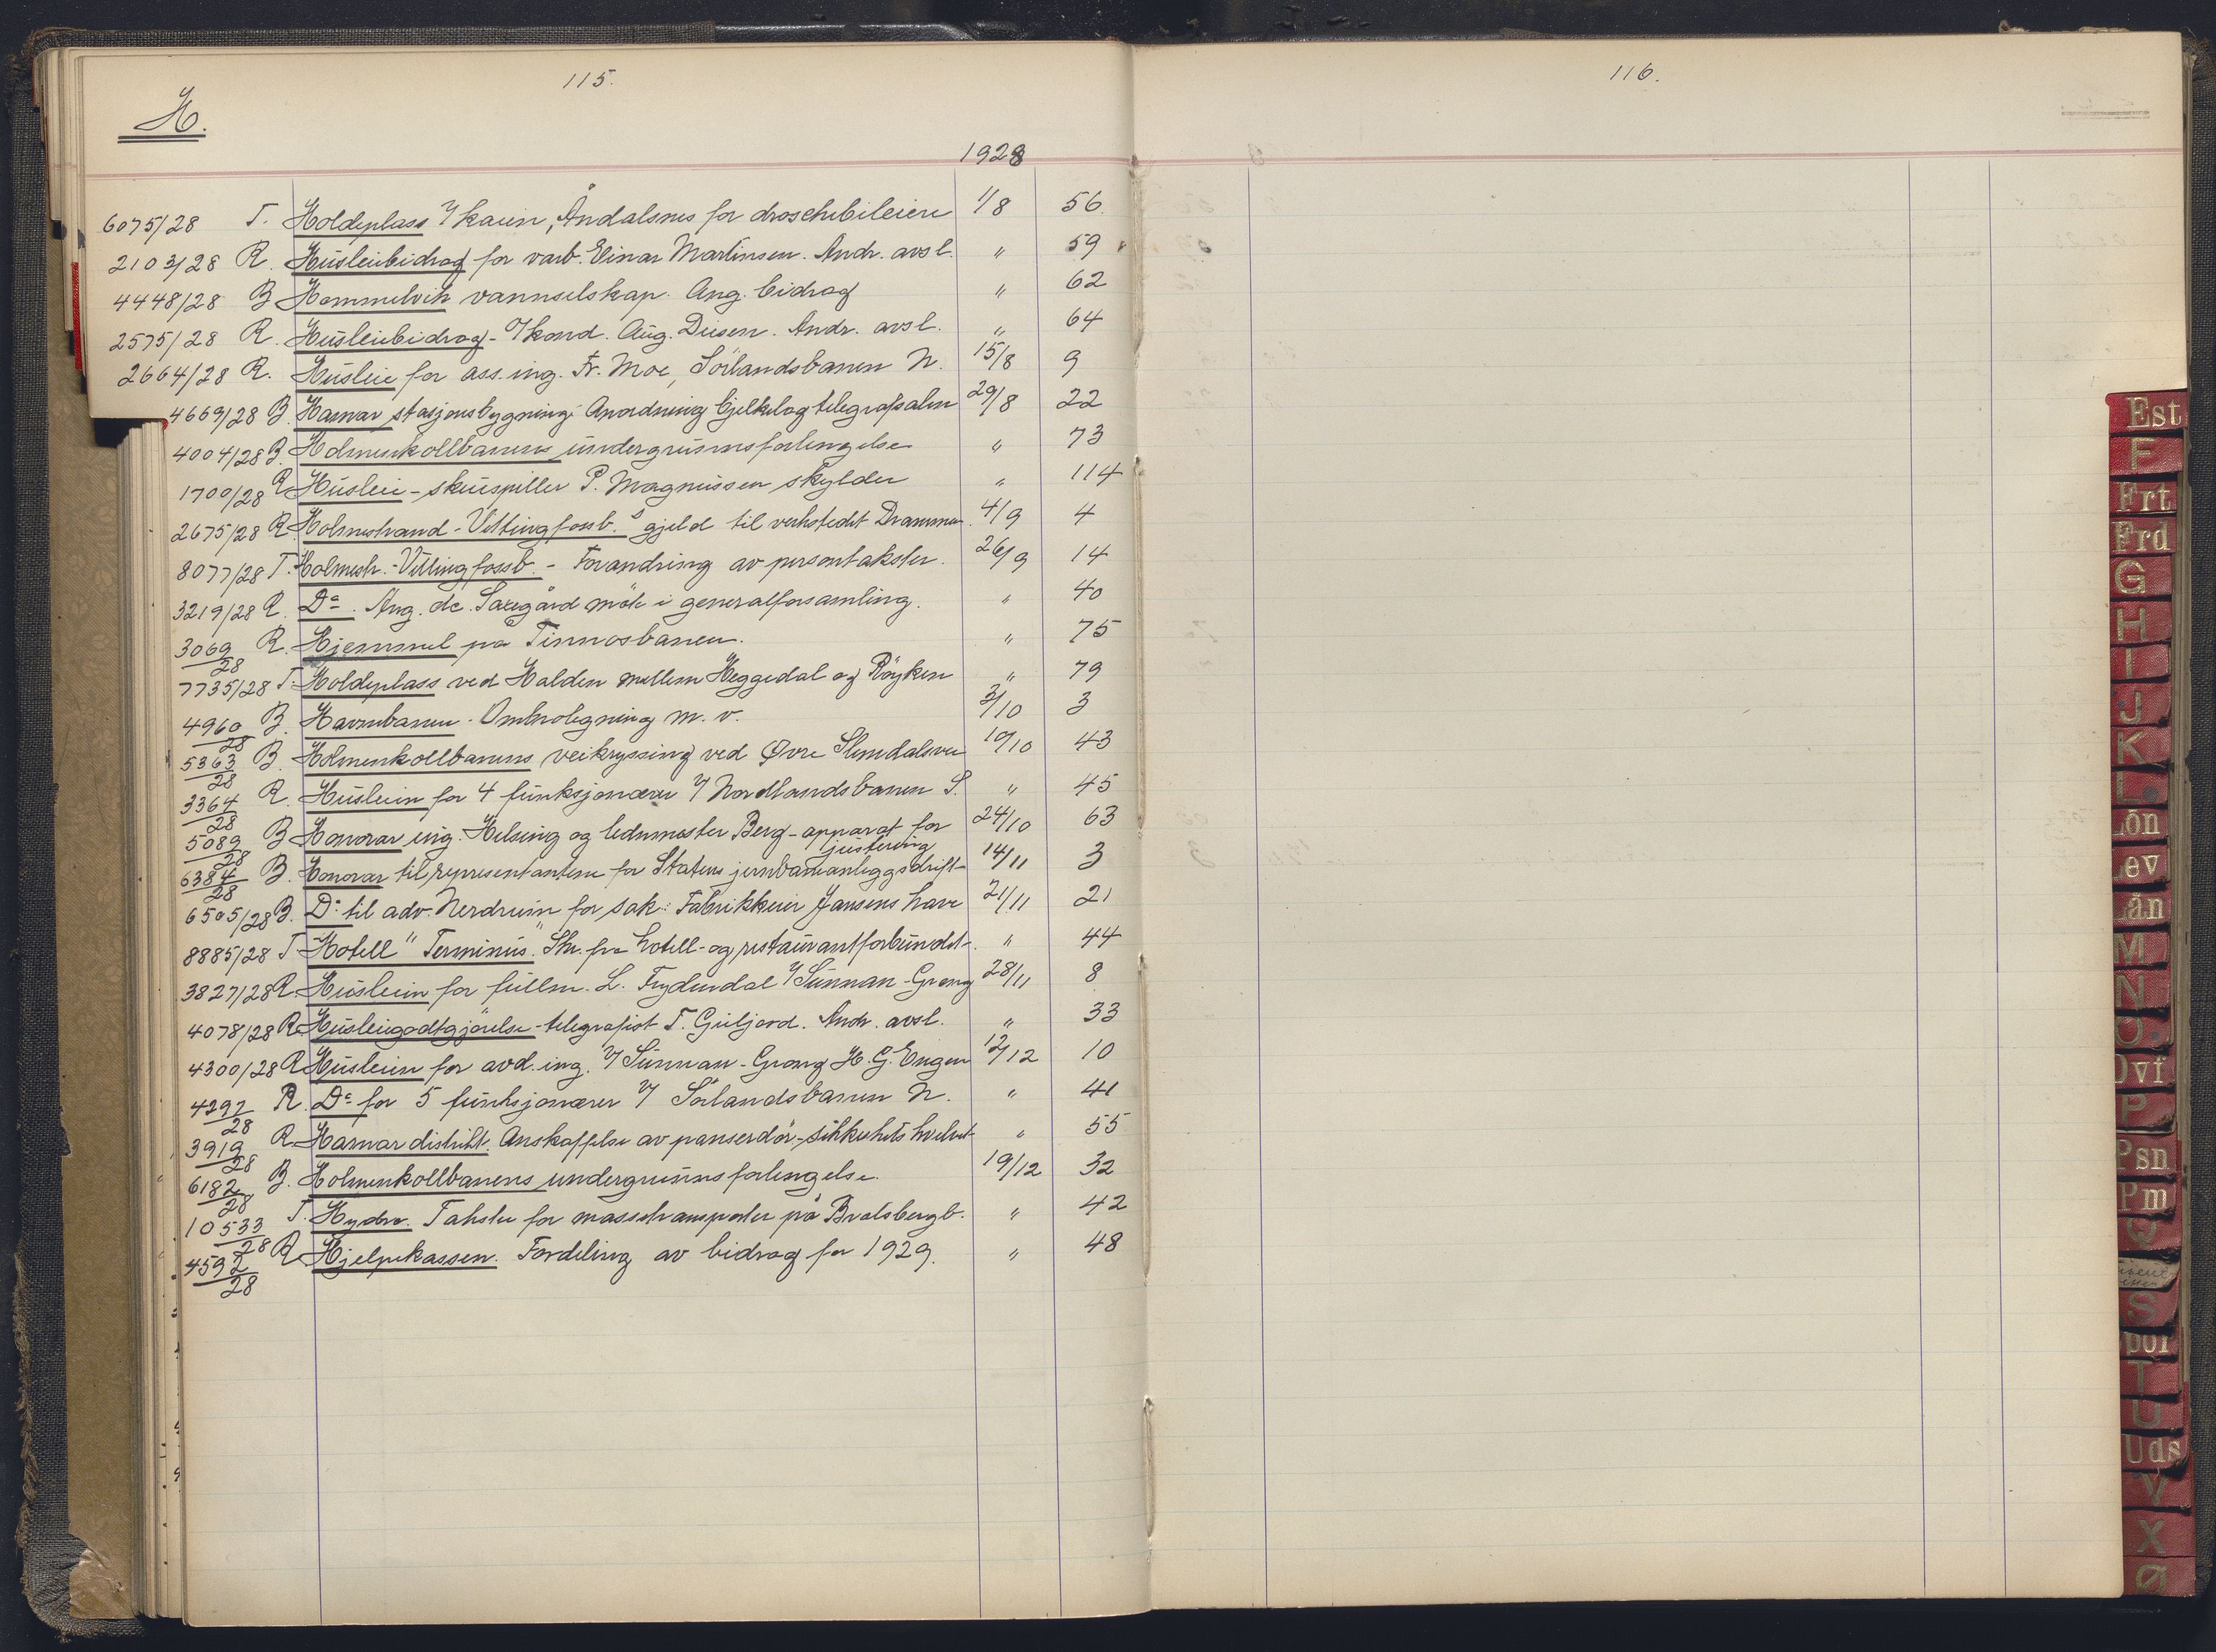 115.
H.
1928
6075/28 T. Holdeplass v/ kaien, Åndalsnes for droschebileiere 1/8 56
2103/28 R. Husleiebidrag for varb. Einar Martinsen. Andr. avsl. " 59
4448/28 B Hommelvik vannselskap. Ang. bidrag " 62
2575/28 R. Husleiebidrag - v/ kond. Aug. Diesen. Andr. avsl. " 64
2664/28 R. Husleie for ass. ing. Fr. Moe, Sörlandsbanen N. 15/8 9
4669/28 B. Hamar stasjonsbygning: Anordning bjelkelag telegrafsalen 29/8 22
4004/28 B. Holmenkollbanens undergrunnsforlengelse " 73
1700/28 R Husleie - skuespiller P. Magnussen skylder " 114
2675/28 R. Holmestrand - Vittingfossb.s gjeld til verkstedet Drammen. 4/9 4
8077/28 T. Holmestr. - Vittingfossb. - Forandring av persontakster. 26/9 14
3219/28 R. Do. Ang. dc. Saxegård möte i generalforsamling. " 40
3069/28 R. Hjemmel på Tinnosbanen. " 75
7735/28 T. Holdeplass ved Halden mellem Heggedal og Röyken " 79
4960/28 B. Havnebanen. Ombrolegning m. v. 3/10 3
5363/28 B. Holmenkollbanens veikryssing ved Øvre Slemdalsvei 10/10 43
3364/28 R. Husleien for 4 funksjonærer v/ Nordlandsbanen S. " 45
5089/28 B Honorar ing. Helsing og ledn.mester Berg - apparat for 24/10 63
justering
6384/28 B. Honorar til representantene for Statens jernbaneanleggsdrift 14/11 3
6505/28 B. Do til adv. Nerdrum for sak: Fabrikkeier Jansens have 21/11 21
8885/28 T Hotell "Terminus". Skr. fra hotell- og restaurantforbundet. " 44
3827/28 R. Husleien for fullm. L. Frydendal v/ Sunnan - Grong 28/11 8
4078/28 R. Husleiegodtgjörelse - telegrafist T. Guljord. Andr. avsl. " 33
4300/28 R Husleien for avd. ing. v/ Sunnan - Grong H. G. Engen 12/12 10
4297/28 R. Do for 5 funksjonærer v/ Sörlandsbanen N. " 41
3919/28 R. Hamar distrikt. Anskaffelse av panserdör - sikkerhetshvelvet " 55
6182/28 B. Holmenkollbanens undergrunnsforlengelse. 19/12 32
10533/28 T. Hydro. Takster for massetransporter på Bratsbergb. " 42
4592/28 R Hjelpekassen. Fordeling av bidrag for 1929. " 48
116.
Est
F
Frt
Frd
G
H
I
J
K
L
Lön
Lev
Lån
M
N
O
Ovf
P
Psn
Pm
Q
S
Spor
T
U
Uds
V
X
Ø